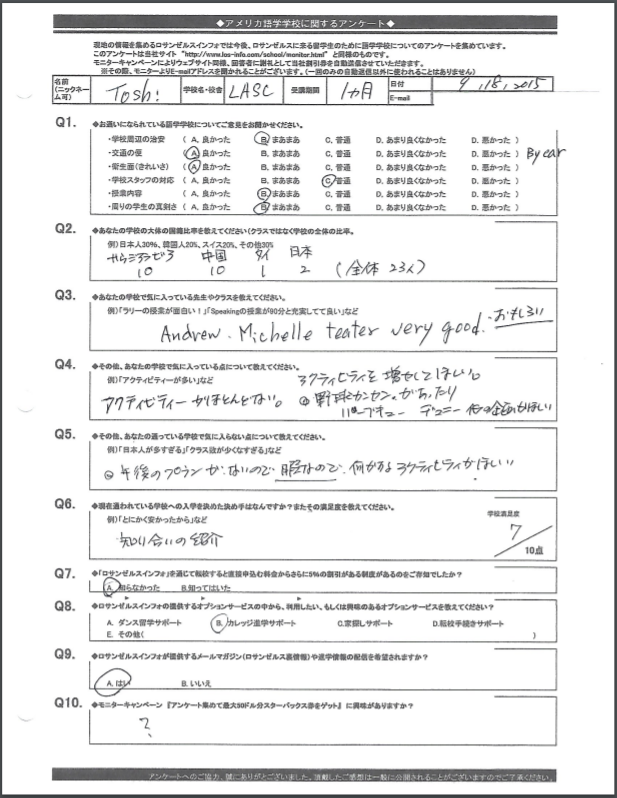 ◆アメリカ語学学校に関するアンケート◆
現地の情報を集めるロサンゼルスインフォでは今後、ロサンゼルスに来る留学生のために語学学校についてのアンケートを集めています。
このアンケートは当社サイト "http://www.los-info.com/school/monitor.html" と同様のものです。
モニターキャンペーンによりウェブサイト同様、回答者に謝礼として当社割引券を自動発送させていただきます。
※その際、モニターよりE-mailアドレスを聞かれることがございます。(一回のみの自動返信以外に使われることはありません)
名前(ニックネーム可) Toshi 学校名・校舎 LASC 受講期間 1ヵ月 日付 9,18,2015
E-mail
Q1. ◆お通いになられている語学学校についてご意見をお聞かせください。
・学校周辺の治安 ( A. 良かった B. まあまあ C. 普通 D. あまり良くなかった D. 悪かった )
・交通の便 ( A. 良かった B. まあまあ C. 普通 D. あまり良くなかった D. 悪かった ) By car
・衛生面(きれいさ) ( A. 良かった B. まあまあ C. 普通 D. あまり良くなかった D. 悪かった )
・学校スタッフの対応 ( A. 良かった B. まあまあ C. 普通 D. あまり良くなかった D. 悪かった )
・授業内容 ( A. 良かった B. まあまあ C. 普通 D. あまり良くなかった D. 悪かった )
・周りの学生の真剣さ ( A. 良かった B. まあまあ C. 普通 D. あまり良くなかった D. 悪かった )
Q2. ◆あなたの学校の大体の国籍比率を教えてください(クラスではなく学校の全体の比率。
例)日本人30%、韓国人20%、スイス20%、その他30%
中国 タイ 日本
10 10 1 2 (全体 23人)
Q3. ◆あなたの学校で気に入っている先生やクラスを教えてください。
例)「ラリーの授業が面白い!」「Speakingの授業が90分と充実してて良い」など
Andrew. Michelle teater very good. おもしろい
Q4. ◆その他、あなたの学校で気に入っている点について教えてください。
例)「アクティビティーが多い」など
アクティビティを増やしてほしい。
アクティビティーがほとんどない。
野球カンセン
バーベキュー 他の企画がほしい
Q5. ◆その他、あなたの通っている学校で気に入らない点について教えてください。
例)「日本人が多すぎる」「クラス数が少なすぎる」など
午後のプランがないので 暇なので、何かするアクティビティがほしい
Q6. ◆現在通われている学校への入学を決めた決め手はなんですか?またその満足度を教えてください。
例)「とにかく安かったから」など
学校満足度
知り合いの紹介
7/10点
Q7. ◆「ロサンゼルスインフォ」を通じて転校すると直接申込む料金からさらに5%の割引がある制度があるのをご存知でしたか?
A. 知らなかった B.知ってはいた
Q8. ◆ロサンゼルスインフォの提供するオプションサービスの中から、利用したい、もしくは興味のあるオプションサービスを教えてください?
A. ダンス留学サポート B. カレッジ進学サポート C.家探しサポート D.転校手続きサポート
E. その他( )
Q9. ◆ロサンゼルスインフォが提供するメールマガジン(ロサンゼルス裏情報)や進学情報の配信を希望されますか?
A. はい B. いいえ
Q10. ◆モニターキャンペーン『アンケート集めて最大50ドル分スターバックス券をゲット』に興味がありますか?
?
アンケートへのご協力、誠にありがとございました。頂戴したご感想は一般に公開されることがございますのでご了承ください。